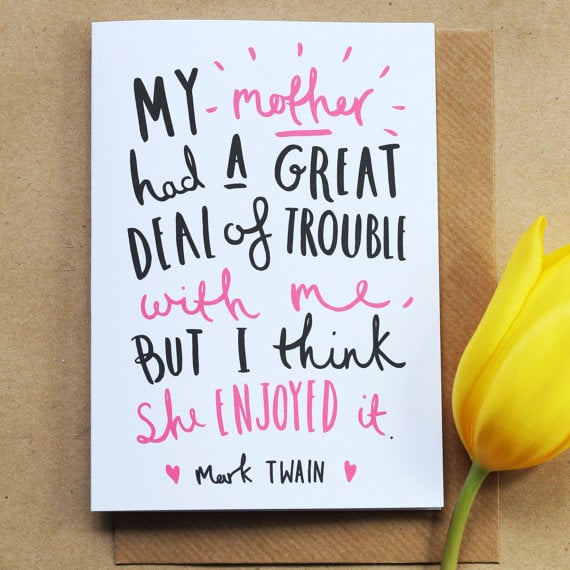 MY mother
had A GREAT
DEAL of TROUBLE
with me,
BUT I think
she ENJOYED it.
Mark TWAIN